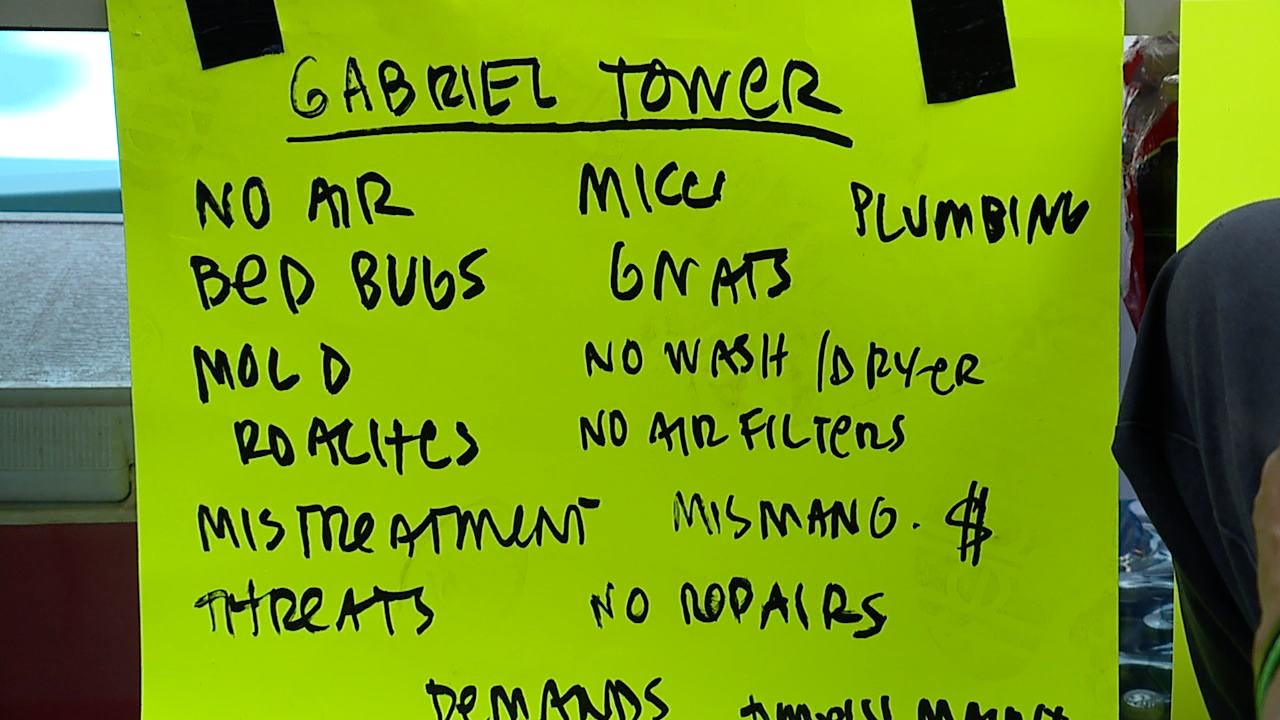 GABRIEL TOWER
NO AIR MICE PLUMBING
BED BUGS GNATS
MOLD NO WASH/DRYER
ROACHES NO AIR FILTERS
MISTREATMENT MISMANG. $
THREATS NO REPAIRS
DEMANDS